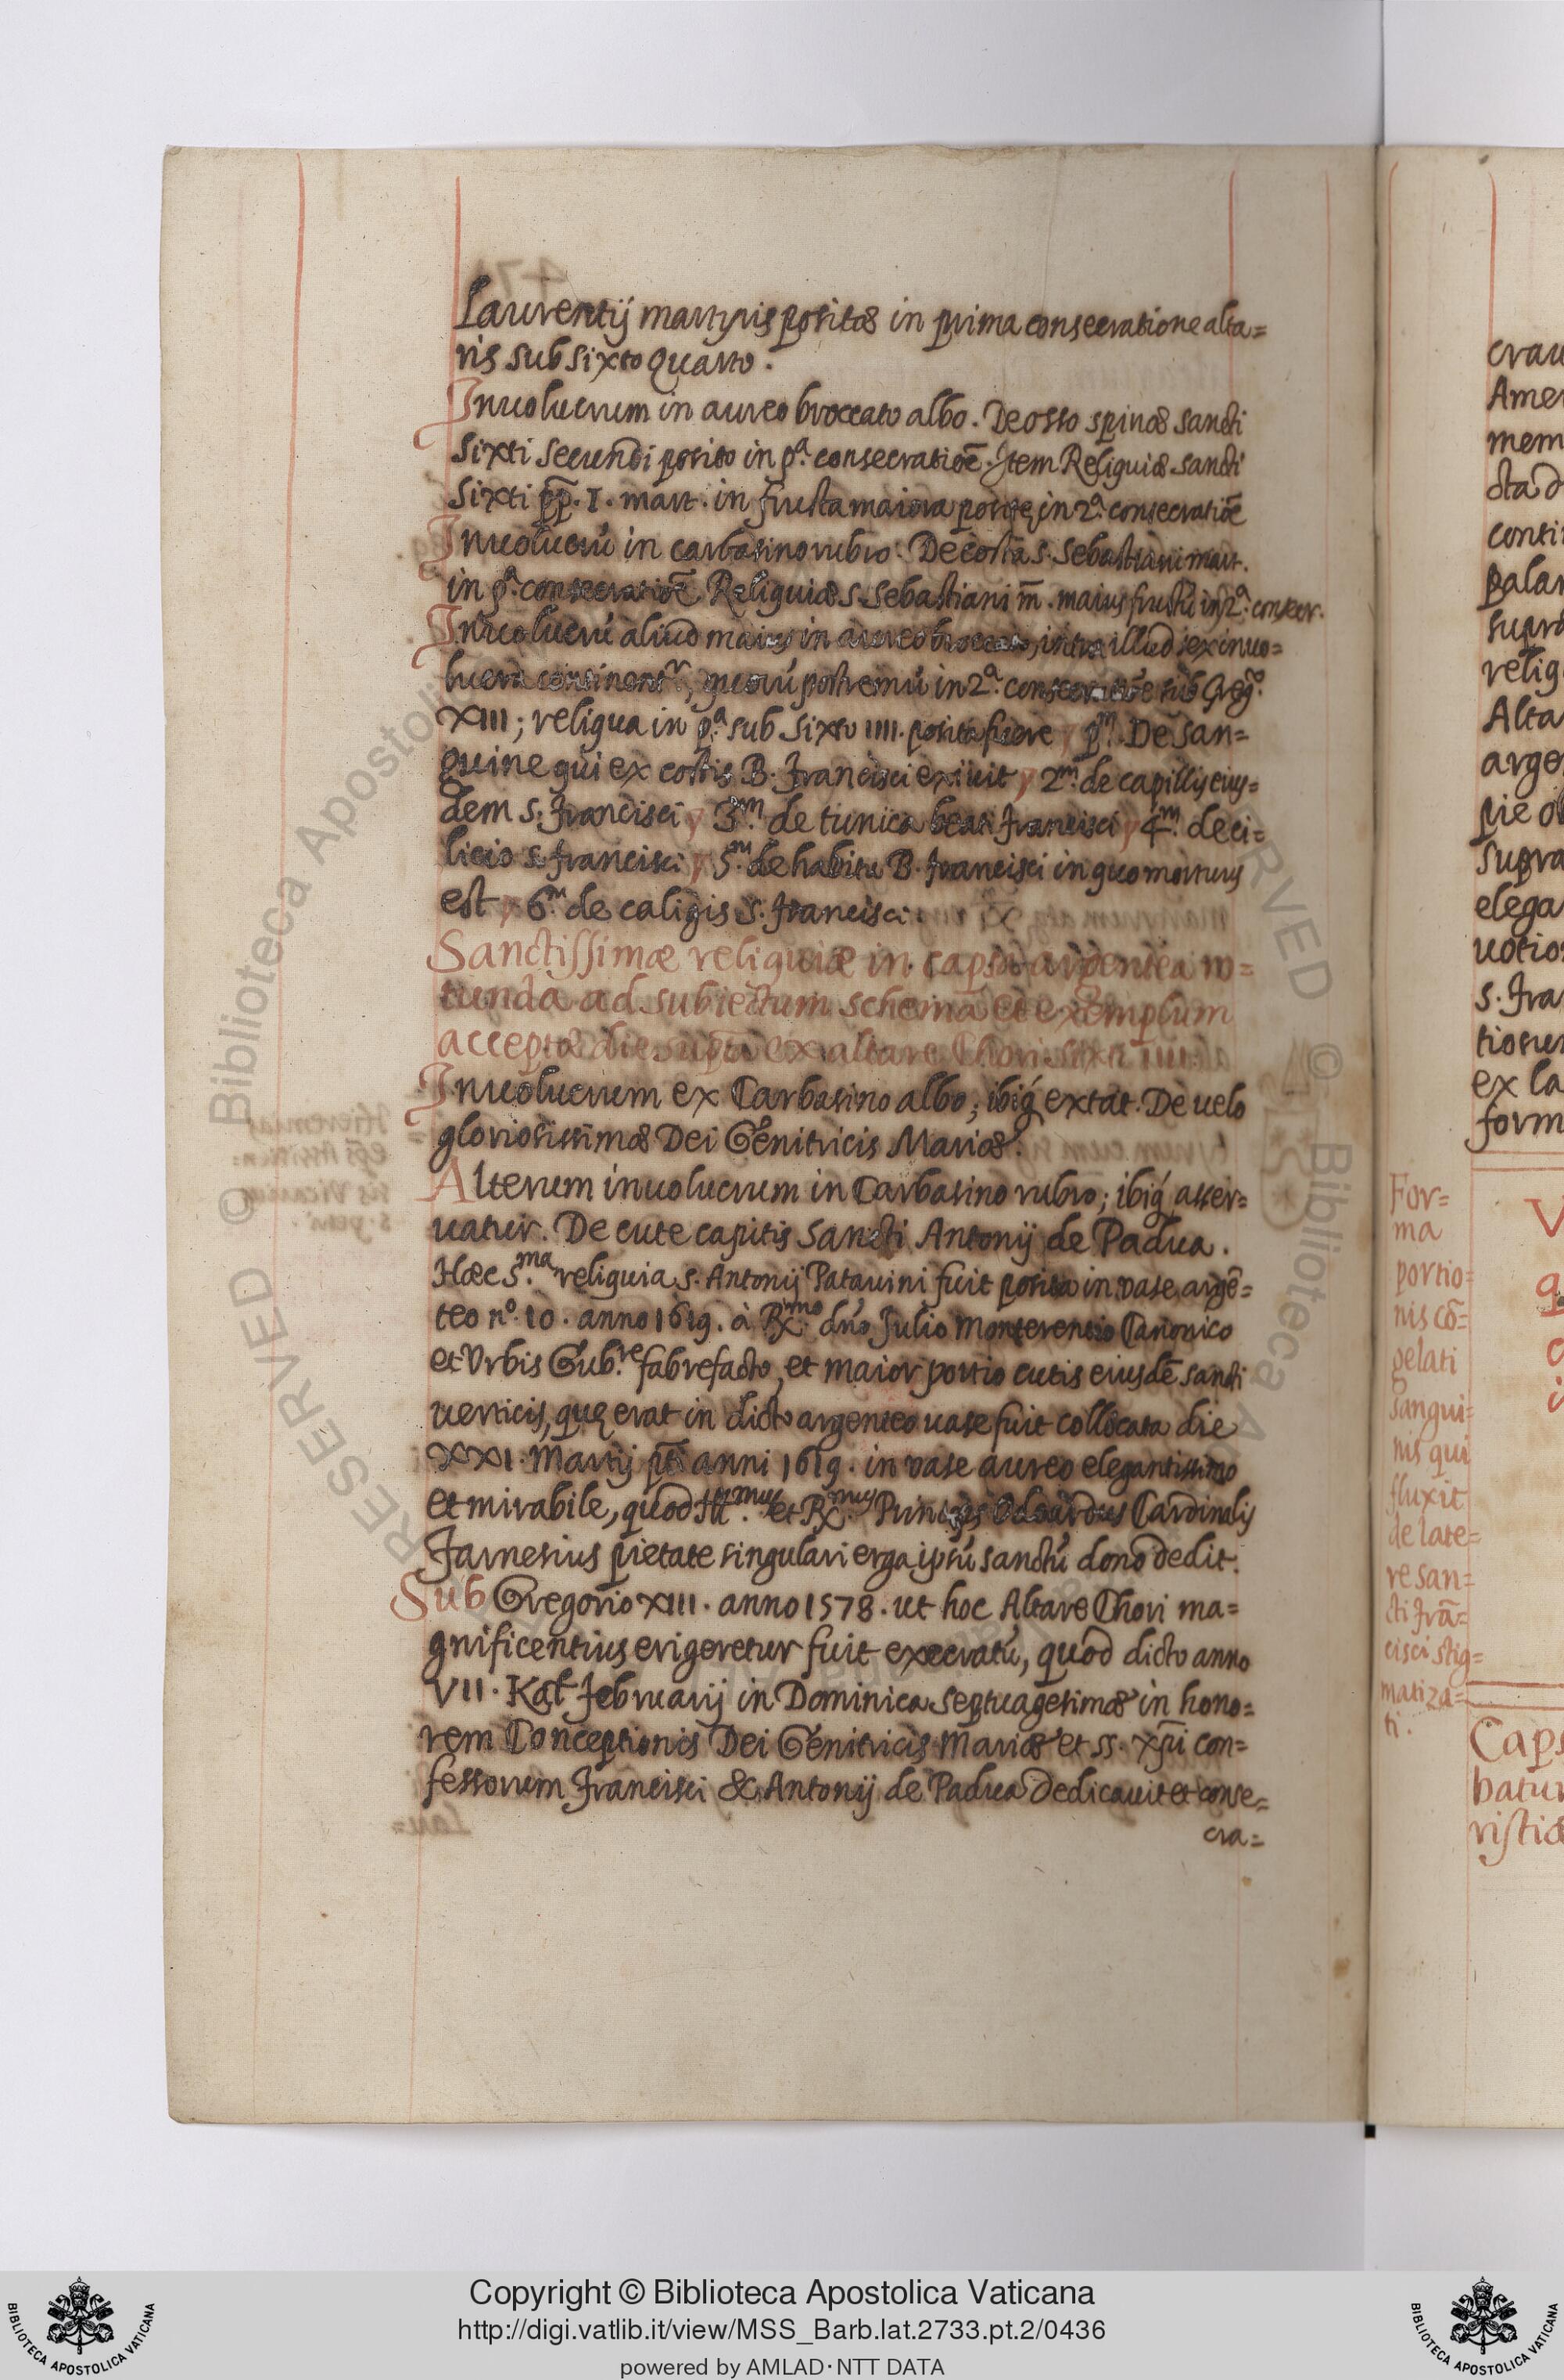 Laurentij martyris positæ in prima consecratione alta=
ris sub Sixto Quarto.
Inuolucrum in aureo broccato albo. De osso spinæ sancti
Sixti Secundi posito in pª. consecratiōe. Item Reliquiæ sancti
Sixti pp̄. I. mart. in frusta maiora positę in 2ª. consecratiōe
Inuolucrū in carbasino rubro. De costa S. Sebastiani mart.
in pª. consecratiōe Reliquiæ S. Sebastiani m̄. maius frustū in 2ª. consecr.
Inuolucrū aliud maius in aureo broccato, intra illud sex inuo=
lucra continentʳ, quorū postremū in 2ª. consecratiōe sub Gregº.
XIII; reliqua in pª. sub Sixto IIII. posita fuere, pᵐ. De San=
guine qui ex costis B. Francisci exiuit, 2ᵐ. de capillis eius=
dem S. Francisci, 3ᵐ. de tunica beati Francisci, 4ᵐ. de ci=
licio S. Francisci, 5ᵐ. de habitu B. Francisci in quo mortuus
est, 6ᵐ. de caligis S. Francisci.
Sanctissimæ reliquiæ in capsa argentea ro=
tunda ad subiectum schema et exemplum
acceptæ die supra ex altare Chori Sixti IIII.
Inuolucrum ex Carbasino albo; ibiq́ extat. De uelo
gloriosissimæ Dei Genitricis Mariæ.
Alterum inuolucrum in Carbasino rubro; ibiq́ asser=
uatur. De cute capitis Sancti Antonij de Padua.
Hæc S.ᵐᵃ reliquia S. Antonij Patauini fuit posita in vase argē=
teo nº. 10. anno 1619. à Rx.ᵐᵒ dnó Julio Monterentio Canonico
et Vrbis Gub.ʳᵉ fabrefacto, et maior portio cutis eiusdē sancti
uerticis, quę erat in dicto argenteo uase fuit collocata die
XXI. Martij pti anni 1619. in vase aureo elegantissimo
et mirabile, quod Ill.ᵐᵘˢ et Rx.ᵐᵘˢ Princeps Odoardus Cardinalis
Farnesius pietate singulari erga ipsū sanctū dono dedit.
Sub Gregorio XIII. anno 1578. ut hoc Altare Chori ma=
gnificentius erigeretur fuit execratū, quod dicto anno
VII. Kal. Februarij in Dominica Septuagesimæ in hono=
rem Conceptionis Dei Genitricis Mariæ et ss. xpi con=
fessorum Francisci & Antonij de Padua dedicauit et conse=
cra=
crau
Amer
mem
cta d
conti
palar
supra
reliq
Alta
arge
pie ob
supra
elega
uotio
s. Fra
tiosu
ex la
form
For=
ma
portio=
nis cō=
gelati
sangui=
nis qui
fluxit
de late=
re san=
cti Frā=
cisci stig=
matiza=
ti.
Caps
batur
ristia
© Biblioteca Apostolica Vaticana
RESERVED
Copyright © Biblioteca Apostolica Vaticana
http://digi.vatlib.it/view/MSS_Barb.lat.2733.pt.2/0436
powered by AMLAD·NTT DATA
BIBLIOTECA APOSTOLICA VATICANA
BIBLIOTECA APOSTOLICA VATICANA